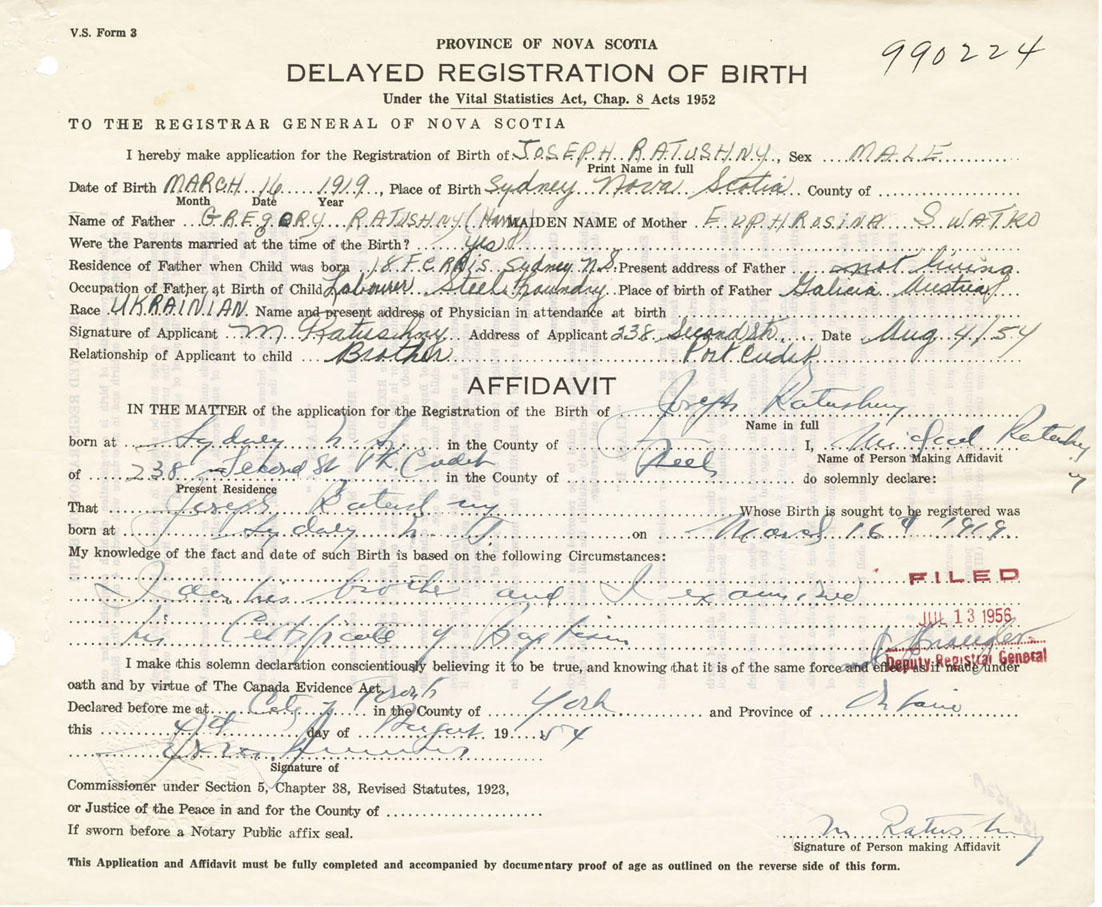 V.S. Form 3
990224
PROVINCE OF NOVA SCOTIA
DELAYED REGISTRATION OF BIRTH
Under the Vital Statistics Act, Chap. 8 Acts 1952
TO THE REGISTRAR GENERAL OF NOVA SCOTIA
I hereby make application for the Registration of Birth of JOSEPH RATUSHNY, Sex MALE
Print Name in full
Date of Birth MARCH 16 1919, Place of Birth Sydney Nova Scotia County of
Month Date Year
Name of Father GREGORY RATUSHNY (Harry) MAIDEN NAME of Mother EUPHROSINA SWATKO
Were the Parents married at the time of the Birth? Yes
Residence of Father when Child was born 18 Sydney N.S. Present address of Father not living
Occupation of Father at Birth of Child Labourer Steel Foundry Place of birth of Father Galicia Austria
Race UKRAINIAN Name and present address of Physician in attendance at birth
Signature of Applicant M Ratushny Address of Applicant 238 Second St. Date Aug 4/54
Relationship of Applicant to child Brother Port Credit
AFFIDAVIT
IN THE MATTER of the application for the Registration of the Birth of Joseph Ratushny
Name in full
born at Sydney N.S. in the County of I, Michael Ratushny
Name of Person Making Affidavit
of 238 Second St Pt. Credit in the County of Peel do solemnly declare:
Present Residence
That Joseph Ratushny Whose Birth is sought to be registered was
born at Sydney N.S. on March 16th 1919
My knowledge of the fact and date of such Birth is based on the following Circumstances:
FILED
I am his brother and I examined
JUL 13 1956
his Certificate of Baptism
Deputy Registrar General
I make this solemn declaration conscientiously believing it to be true, and knowing that it is of the same force and effect as if made under
oath and by virtue of The Canada Evidence Act.
Declared before me at City of Toronto in the County of York and Province of Ontario
this 4th day of August 19 54
Signature of
Commissioner under Section 5, Chapter 38, Revised Statutes, 1923,
or Justice of the Peace in and for the County of
If sworn before a Notary Public affix seal.
M Ratushny
Signature of Person making Affidavit
This Application and Affidavit must be fully completed and accompanied by documentary proof of age as outlined on the reverse side of this form.